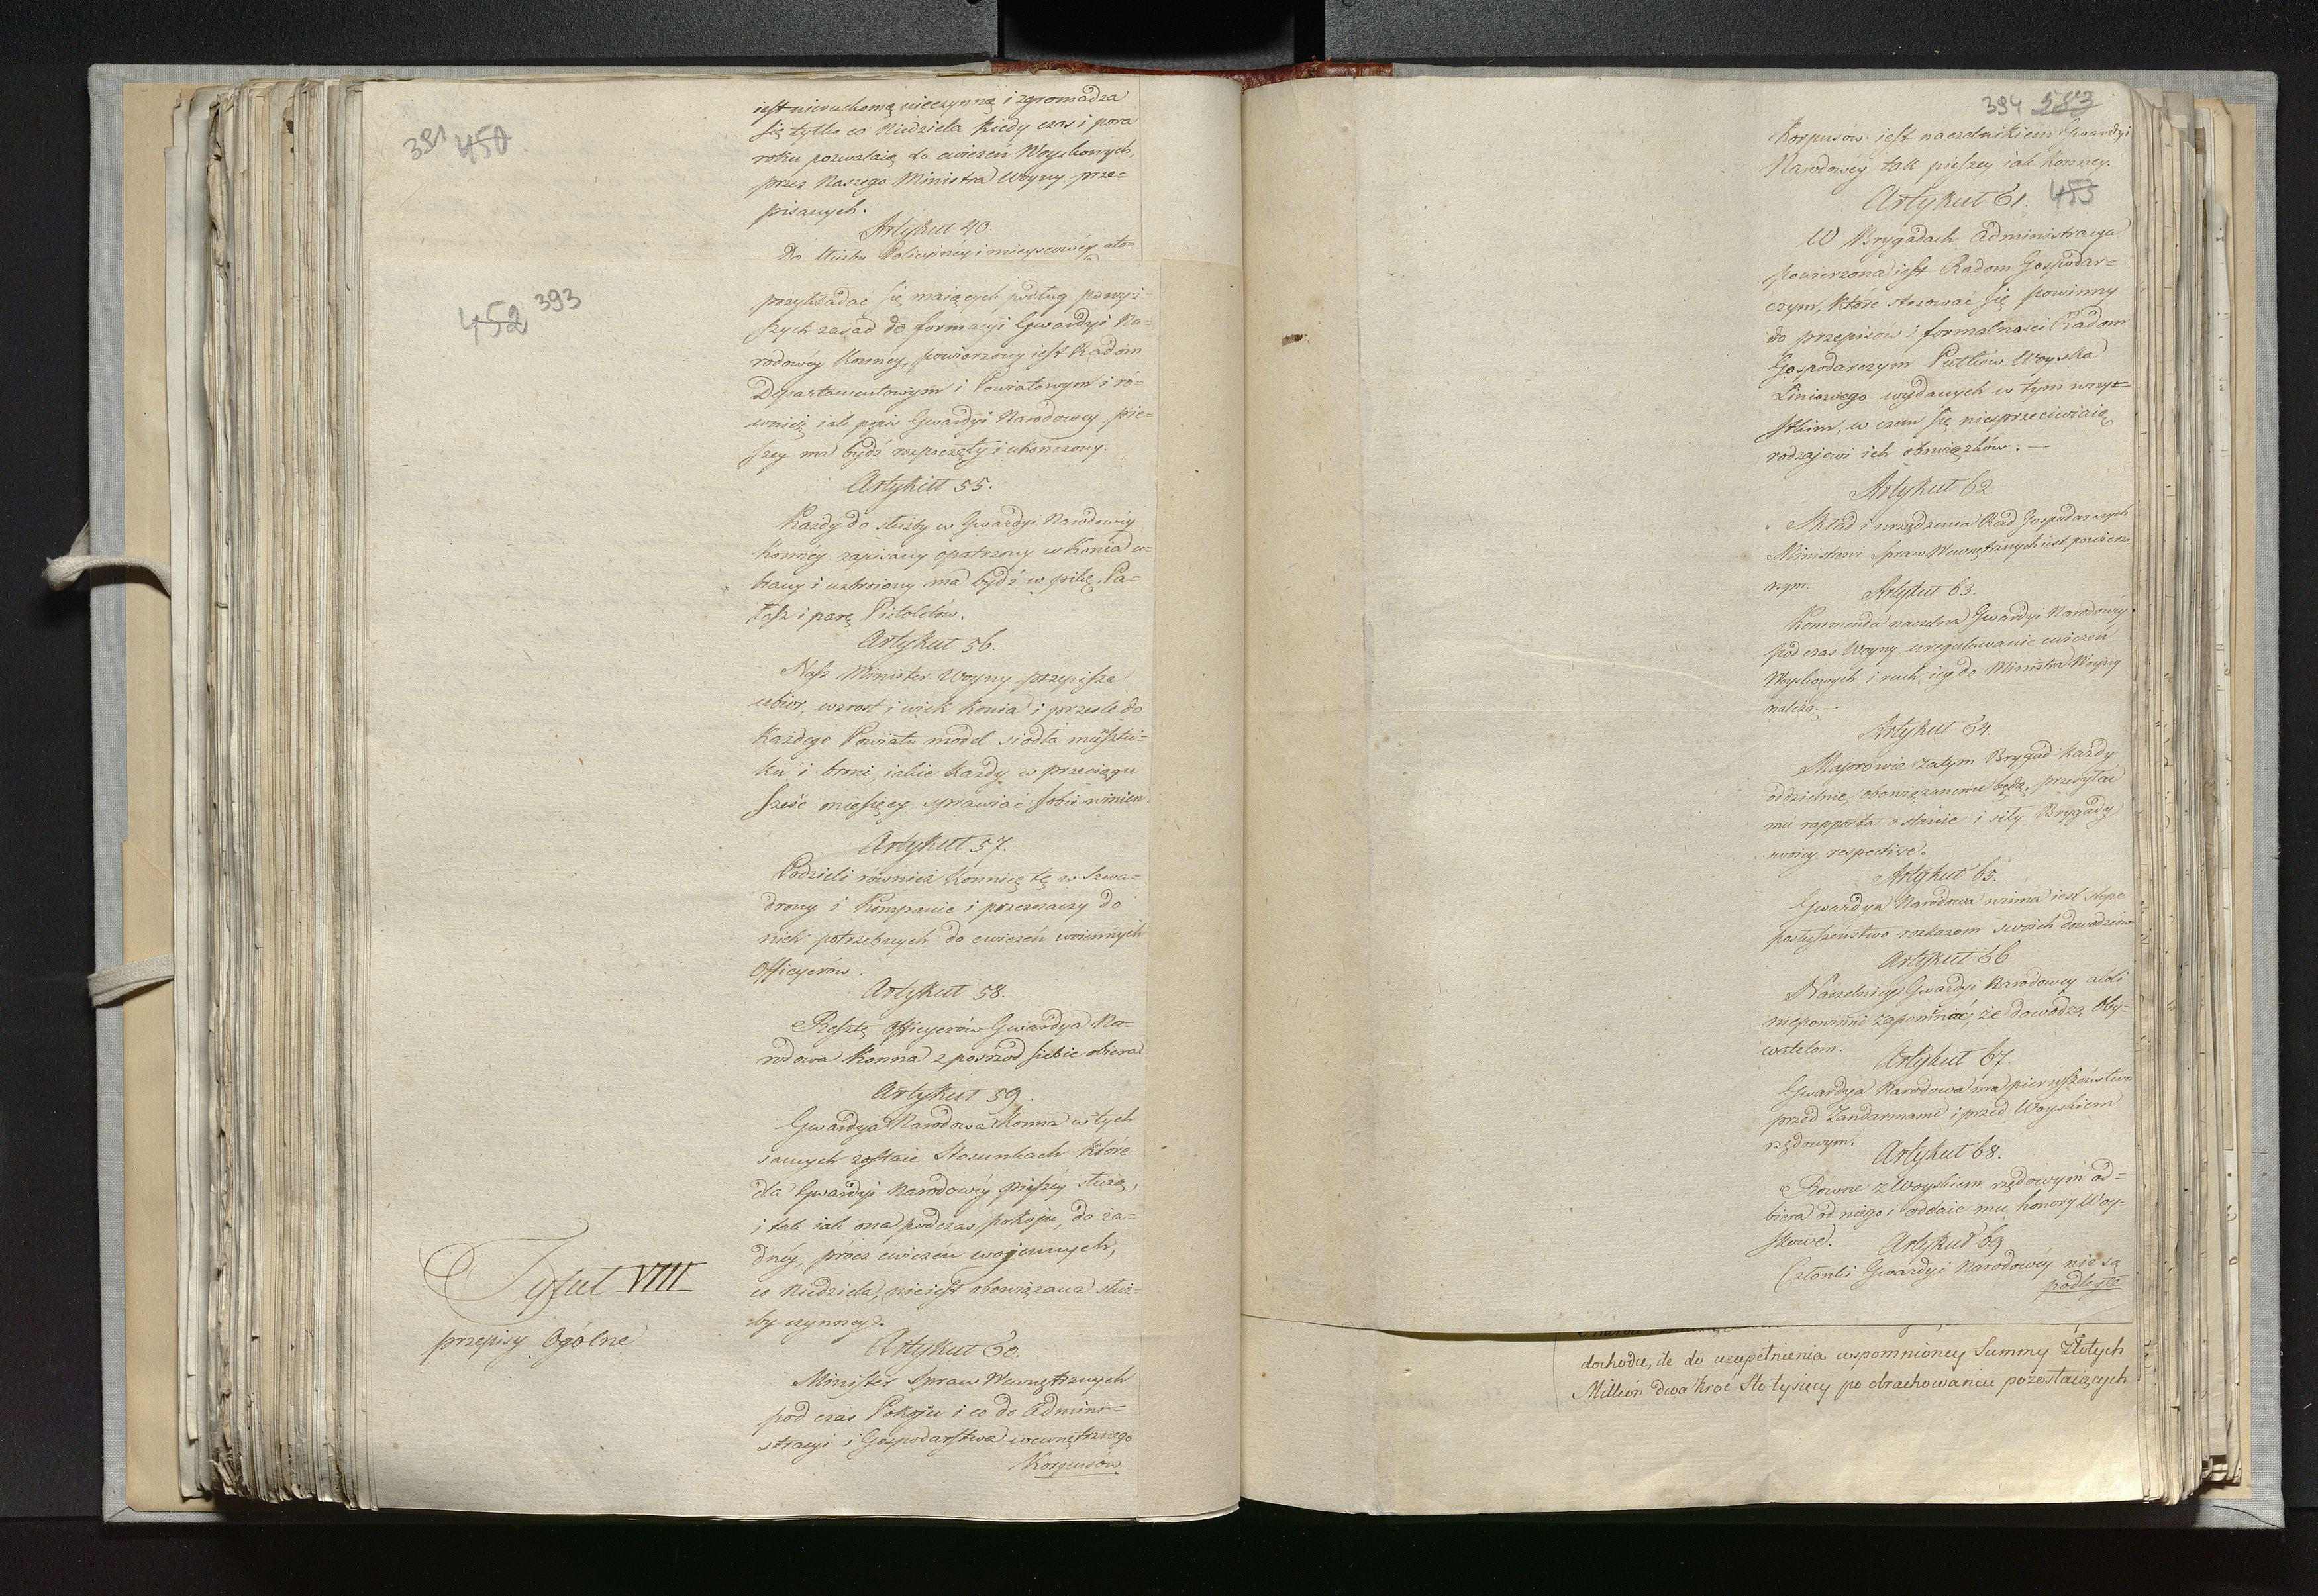 391 450
iest nieruchomą nieczynną i zgromadza
się tylko co Niedziela kiedy czas i pora
roku pozwalaią do cwiczeń Woyskowych,
przez Naszego Ministra Woyny prze=
pisanych.
Artykuł 40.
Do służby Policyinéy i mieyscowéy ato=
452 393
przykładać się maiących podług powyż=
szych zasad do formacyi Gwardyi Na=
rodowéy Konney, powierzony iest Radom
Departamentowym i Powiatowym i ró=
wnież iak popis Gwardyi Narodowey pie=
szey ma bydź rozpoczęty i ukończony.
Artykuł 55.
Każdy do służby w Gwardyi Narodowéy
Konnéy zapisany opatrzony w Konia u=
brany i uzbroiony ma bydź w pikę, Pa=
łasz i parę Pistoletów.
Artykuł 56.
Nasz Minister Woyny przepisze
ubior, wzrost i wiek Konia i przesle do
Każdego Powiatu model siodła musztu=
ku i broni, iakie każdy w przeciągu
sześć miesięcy sprawiać sobie winien.
Artykuł 57.
Podzieli również Konnicę tę w Szwa=
drony i Kompanie i przeznaczy do
nich potrzebnych do cwiczeń woiennych
Officyerów.
Artykuł 58.
Resztę Officyerów Gwardya Na=
rodowa Konna z posrzod siebie obiera.
Artykuł 59.
Gwardya Narodowa Konna w tych
samych zostaie Stosunkach które
dla Gwardyi Narodowéy pieszey służą,
i tak iak ona podczas pokoju, do ża=
dnéy, prócz cwiczeń wojennych,
co Niedziela, nieiest obowiązana służ=
by czynney.
Tytuł VIII
przepisy Ogólne
Artykuł 60.
Minister Spraw Wewnętrznych
pod czas Pokoju i co do Admini=
stracyi i Gospodarstwa wewnętrznego
Korpusów
394 583
Korpusów iest naczelnikiem Gwardyi
Narodowéy tak pieszey iak Konney.
Artykuł 61. 453
W Brygadach Administracya
powierzona iest Radom Gospodar=
czym, które stosować się powinny
do przepisów i formalnosci Radom
Gospodarczym Pułków Woyska
Liniowego wydanych w tym wszy=
stkim, w czem się niesprzeciwiaią
rodzajowi ich obowiązków. —
Artykuł 62
Skład i urządzenia Rad Gospodarczych
Ministrowi Spraw Wewnętrznych iest powierzo
nym.
Artykuł 63.
Kommenda naczelna Gwardyi Narodowéy
pod czas Woyny uregulowanie cwiczeń
Woyskowych i ruch iey do Ministra Woyny
należą. —
Artykuł 64.
Majorowie zatym Brygad każdy
oddzielnie, obowiązanemi będą, przesyłać
mu rapporta o stanie i siły Brygady
swoiey respective.
Artykuł 65.
Gwardya Narodowa winna iest slepe
posłuszeństwo rozkazom swoich dowodzców
Artykuł 66
Naczelnicy Gwardyi Narodowey alboli
niepowinni zapomniać, że dowodzą Oby=
watelom.
Artykuł 67.
Gwardya Narodowa ma pierwszeństwo
przed Żandarmami i przed Woyskiem
rzędowym.
Artykuł 68.
Rowne z Woyskiem rzędowym od=
biera od niego i oddaie mu honory Woy=
skowe.
Artykuł 69
Członki Gwardyi Narodowéy nie są
podległe
dochodu, ile do uzupełnienia wspomnioney Summy Złotych
Million dwa kroć Sto tysięcy po obrachowaniu pozostaiących